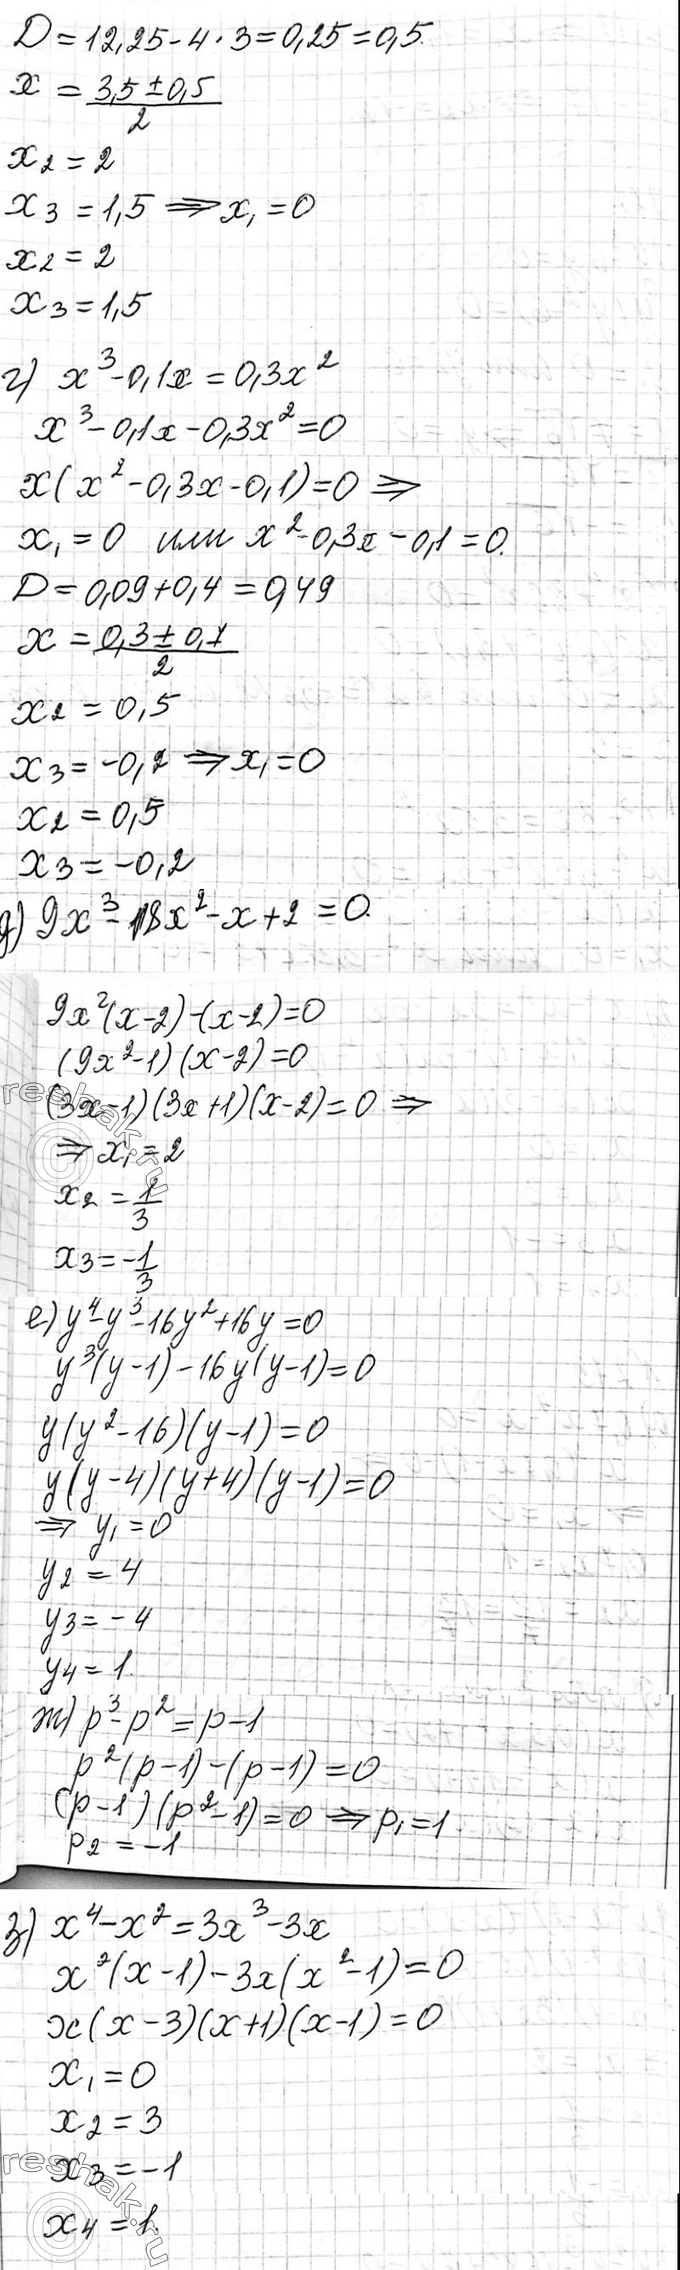 D = 12,25 - 4 · 3 = 0,25 = 0,5.
x = (3,5 ± 0,5)/2
x₂ = 2
x₃ = 1,5 ⇒ x₁ = 0
x₂ = 2
x₃ = 1,5
г) x³ - 0,1x = 0,3x²
x³ - 0,1x - 0,3x² = 0
x(x² - 0,3x - 0,1) = 0 ⇒
x₁ = 0 или x² - 0,3x - 0,1 = 0.
D = 0,09 + 0,4 = 0,49
x = (0,3 ± 0,7)/2
x₂ = 0,5
x₃ = -0,2 ⇒ x₁ = 0
x₂ = 0,5
x₃ = -0,2
д) 9x³ - 18x² - x + 2 = 0.
9x²(x - 2) - (x - 2) = 0
(9x² - 1)(x - 2) = 0
(3x - 1)(3x + 1)(x - 2) = 0 ⇒
⇒ x₁ = 2
x₂ = 1/3
x₃ = -1/3
reshak.ru
е) y⁴ - y³ - 16y² + 16y = 0
y³(y - 1) - 16y(y - 1) = 0
y(y² - 16)(y - 1) = 0
y(y - 4)(y + 4)(y - 1) = 0
⇒ y₁ = 0
y₂ = 4
y₃ = -4
y₄ = 1.
ж) p³ - p² = p - 1
p²(p - 1) - (p - 1) = 0
(p - 1)(p² - 1) = 0 ⇒ p₁ = 1.
p₂ = -1
з) x⁴ - x² = 3x³ - 3x
x²(x - 1) - 3x(x² - 1) = 0
x(x - 3)(x + 1)(x - 1) = 0
x₁ = 0
x₂ = 3
x₃ = -1
x₄ = 1.
reshak.ru